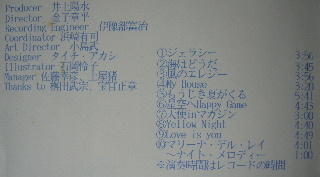 Producer 井上陽水
Director 金子章平
Recording Engineer 伊豫部富治
Coordinator 浜崎有可
Art Director 小島武
Designer タイチ・アカシ
Illustrator 石岡怜子
Manager 佐藤幸彦、土屋緒
Thanks to 横田武宗、宝官正章
①ジェラシー 3:56
②海はどうだ 3:45
③風のエレジー 3:56
④My House 3:20
⑤もうじき夏がくる 5:41
⑥星空へHappy Game 4:43
⑦天使インマガジン 3:00
⑧Yellow Night 4:40
⑨Love is you 4:49
⑩マリーナ・デル・レイ 4:01
〜ナイト・メロディー 1:00
※演奏時間はレコードの時間